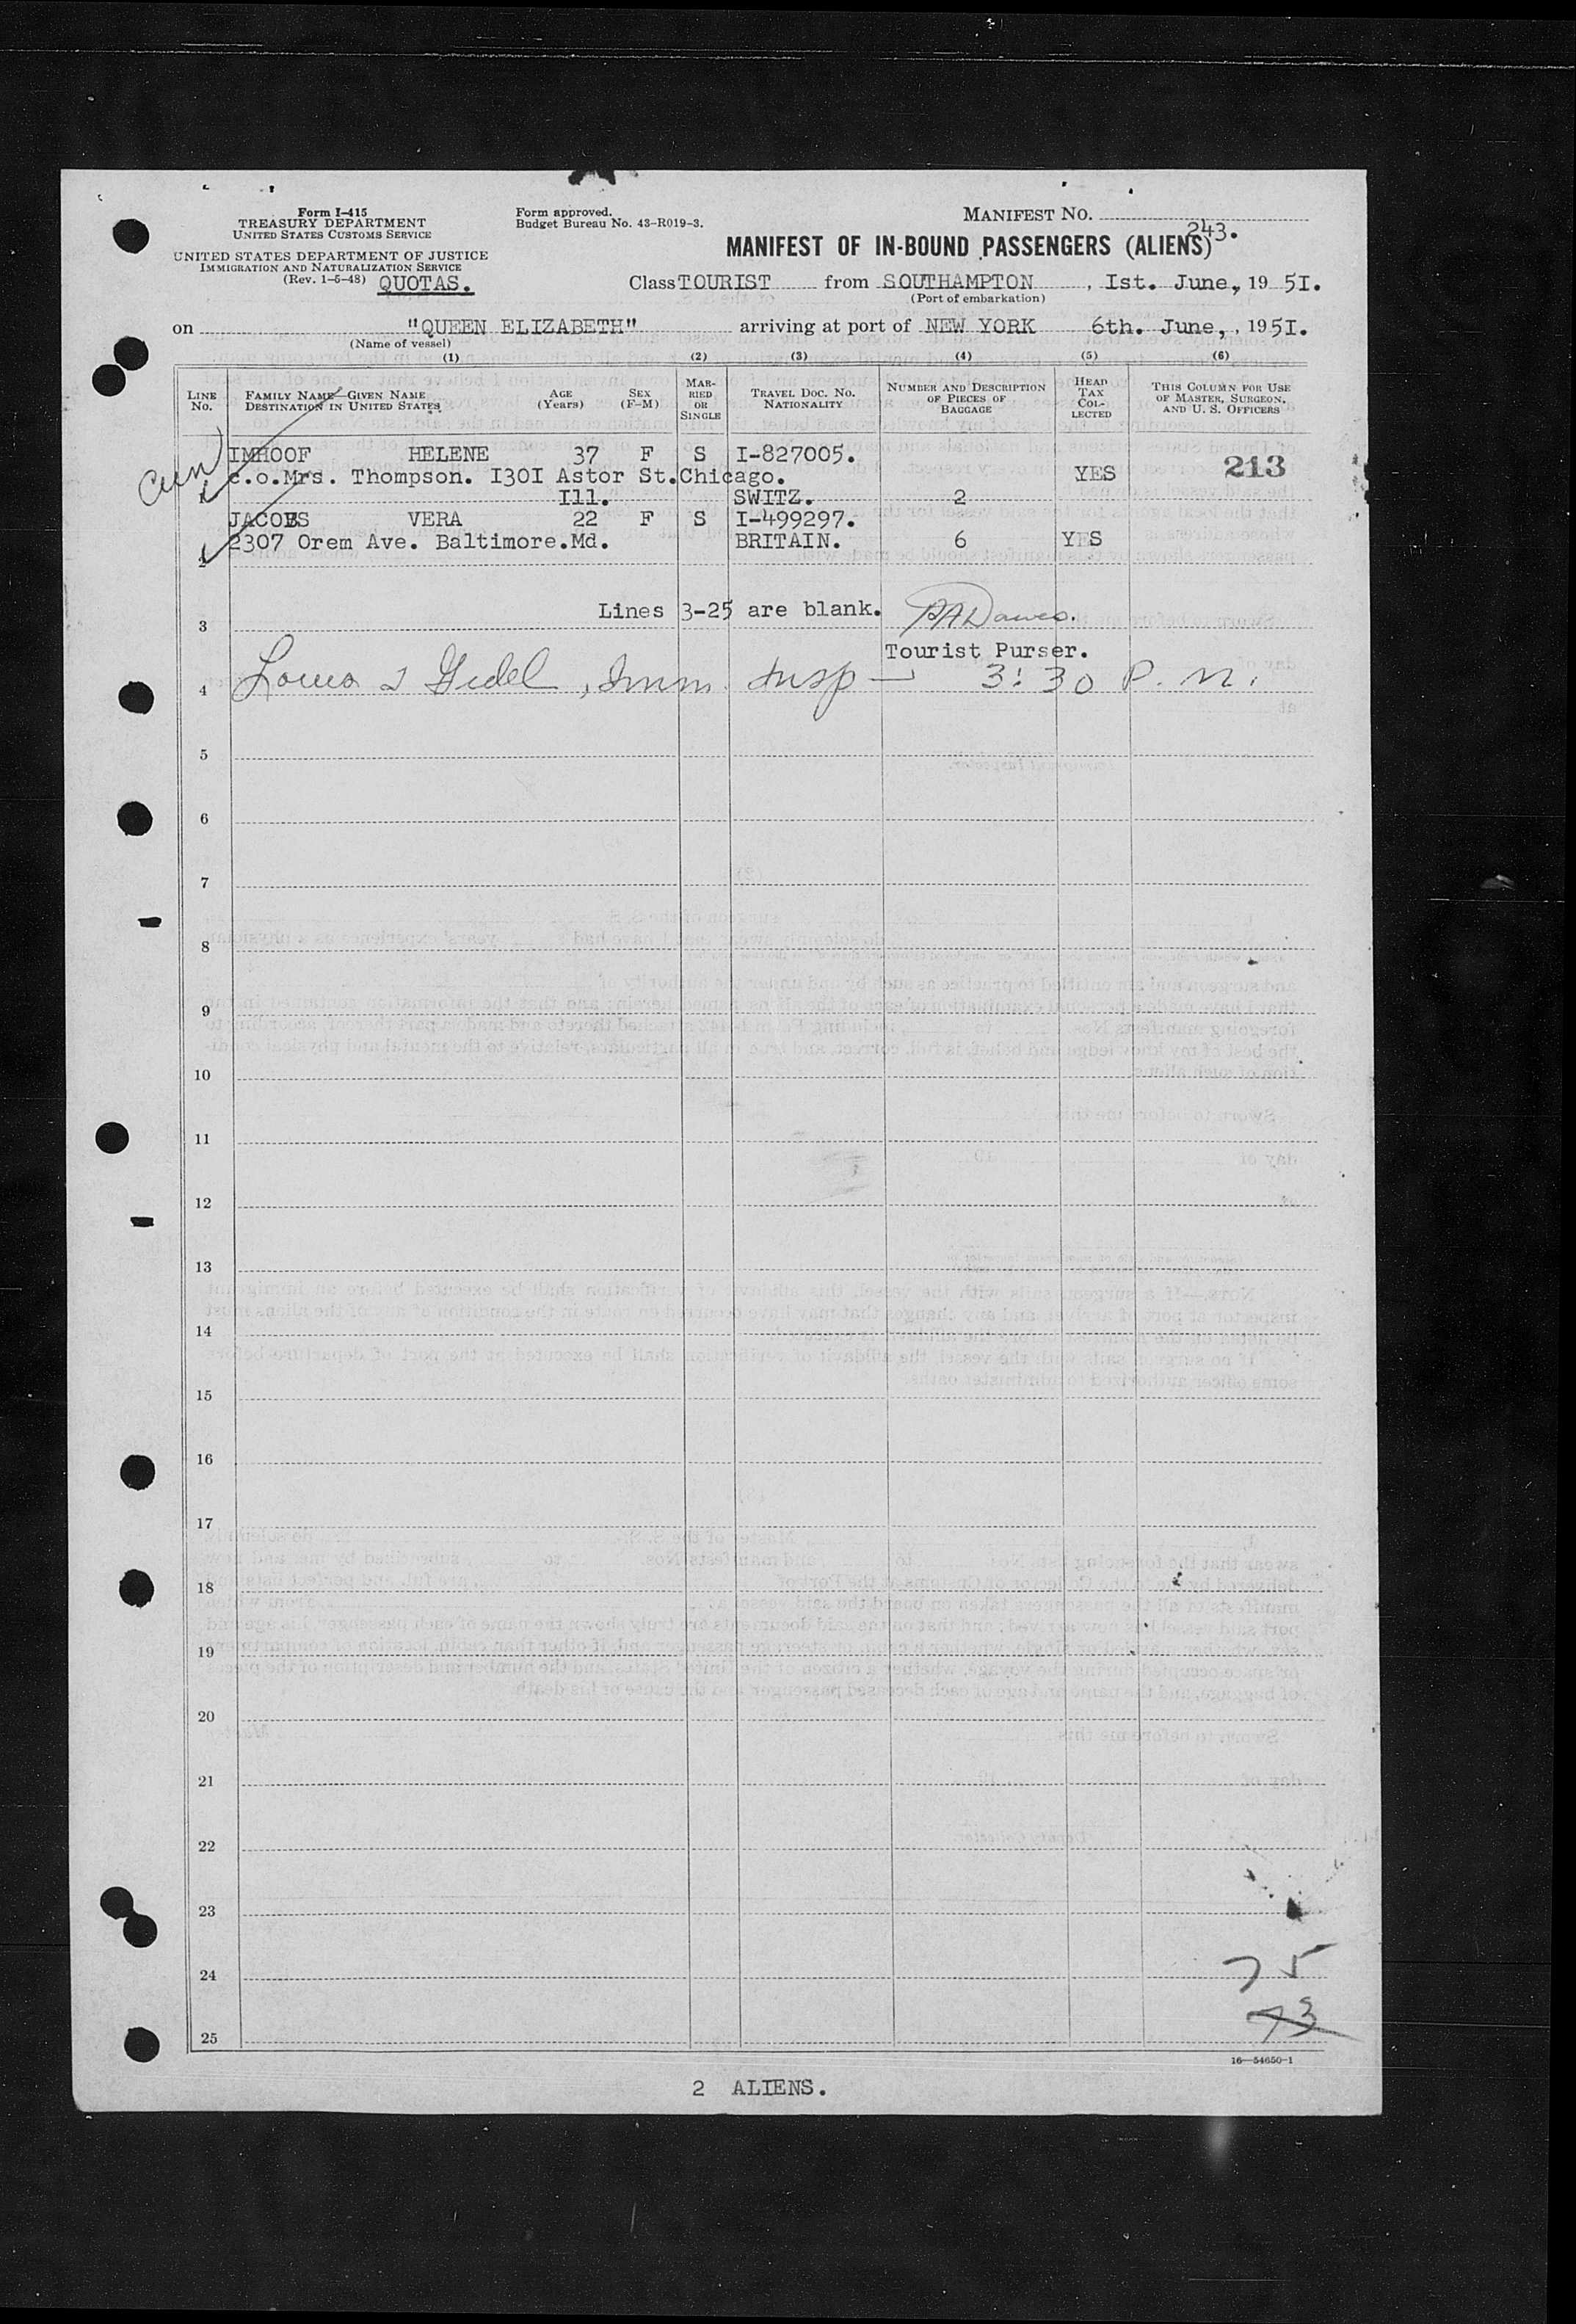 Form I-415
TREASURY DEPARTMENT
UNITED STATES CUSTOMS SERVICE
UNITED STATES DEPARTMENT OF JUSTICE
IMMIGRATION AND NATURALIZATION SERVICE
(Rev. 1-5-48) QUOTAS.
Form approved.
Budget Bureau No. 43-R019-3.
MANIFEST NO. 243.
MANIFEST OF IN-BOUND PASSENGERS (ALIENS)
Class TOURIST from SOUTHAMPTON, Ist. June, 19 5I.
(Port of embarkation)
on "QUEEN ELIZABETH" arriving at port of NEW YORK 6th. June, , 195I.
(Name of vessel)
(1) (2) (3) (4) (5) (6)
LINE No.
FAMILY NAME—GIVEN NAME
DESTINATION IN UNITED STATES
AGE (Years)
SEX (F-M)
MARRIED OR SINGLE
TRAVEL DOC. NO. NATIONALITY
NUMBER AND DESCRIPTION OF PIECES OF BAGGAGE
HEAD TAX COLLECTED
THIS COLUMN FOR USE OF MASTER, SURGEON, AND U. S. OFFICERS
IMHOOF HELENE 37 F S I-827005.
c.o.Mrs. Thompson. I30I Astor St.Chicago. YES 213
Ill. SWITZ. 2
JACOBS VERA 22 F S I-499297.
2307 Orem Ave. Baltimore.Md. BRITAIN. 6 YES
2
Lines 3-25 are blank.
3
Tourist Purser.
4 Imm. Insp — 3:30 P.M.
5
6
7
8
9
10
11
12
13
14
15
16
17
18
19
20
21
22
23
24
75
25
43
16—54650-1
2 ALIENS.